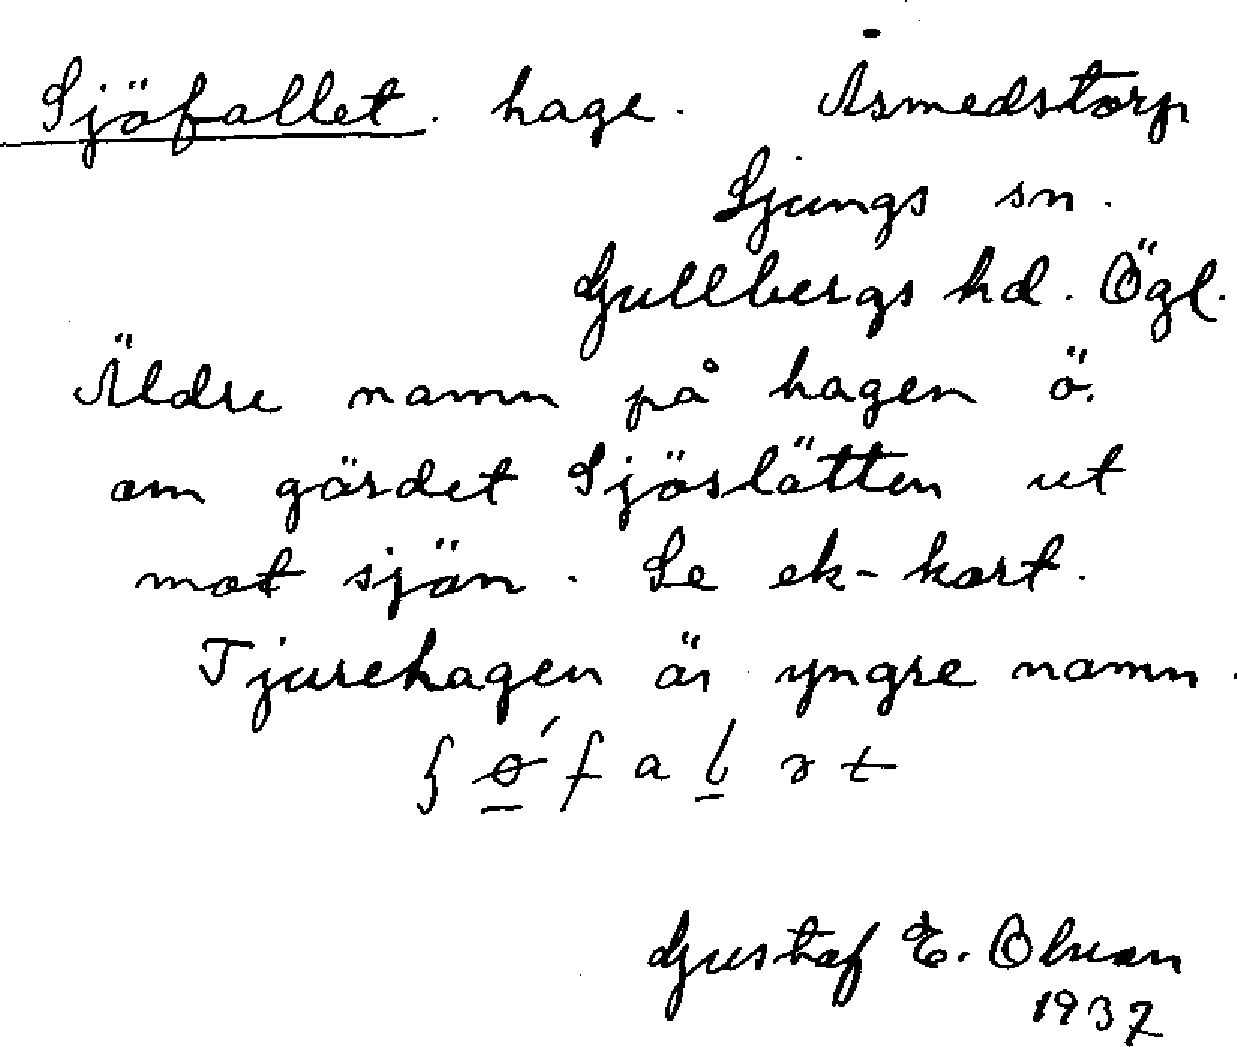 Sjöfallet. hage. Åsmedstorp
Ljungs sn.
Gullbergs hd. Ögl.
Äldre namn på hagen ö.
om gärdet Sjöslätten ut
mot sjön. Se ek-kart.
Tjurehagen är yngre namn.
Gustaf E. Olsson
1937